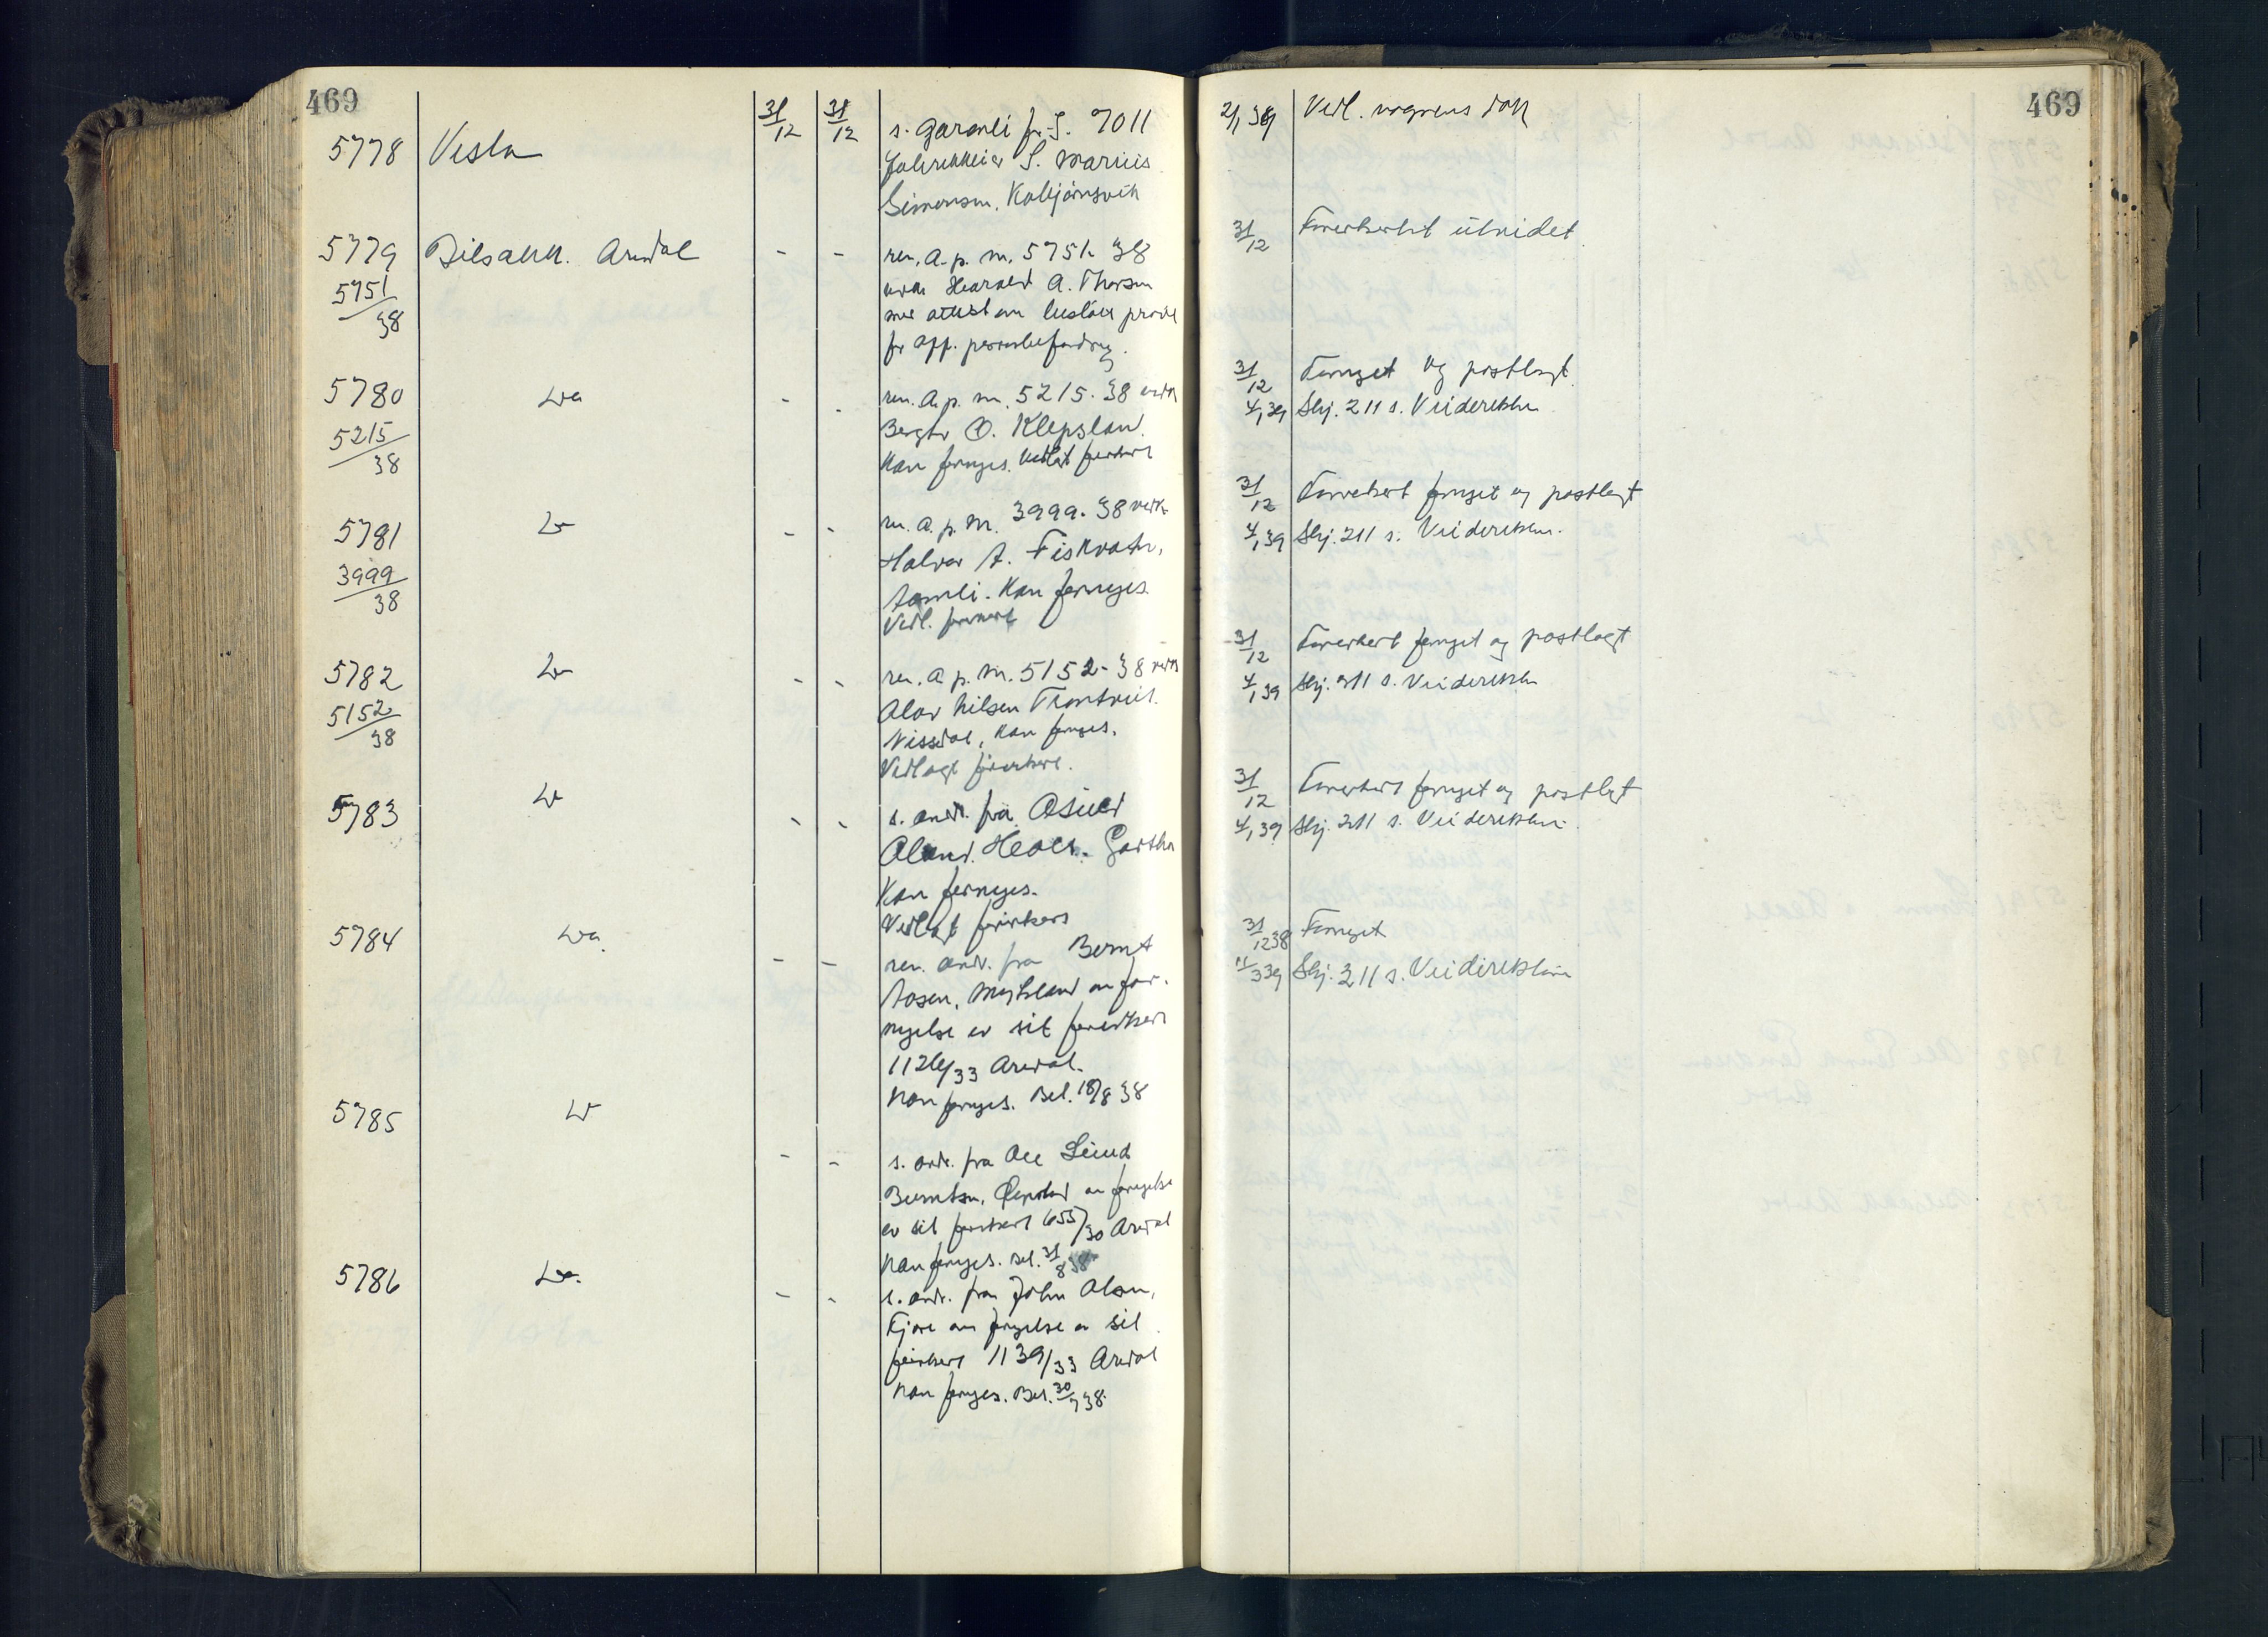 469
5778 Vesta 31/12 31/12 s. garanti for I. 7011
fabrikkeier S. Marius
Simonsen, Kolbjørnsvik
5779 Bilsakk. Arendal - - ren. a. p. m. 5751- 38
5751/38 vedk Harald A. Thorsen
med attest om bestått prøve
for off. personbefordring.
5780 do - - ren. a. p. m. 5215. 38 vedk
5215/38 Bergtor O. Klepsland.
Kan fornyes. Vedlagt førerkort
5781 do - - ren. a. p. m. 3999. 38 vedk
3999/38 Halvor A. Fiskvatn,
Aamli. Kan fornyes.
Vedl. førerkort
5782 do - - ren. a. p. m. 5152- 38 vedk
5152/38 Olav Nilsen
Nissedal, kan fornyes.
Vedlagt førerkort.
5783 do - - s. andr. fra
Kan fornyes.
Vedlagt førerkort
5784 do. - - ren. andr. fra Bernt
Aasen, Mykland om for-
nyelse av sit førerkort
1126/33 Arendal.
Kan fornyes. Bet. 18/8 38
5785 do - - s. andr. fra
Berntsen, om fornyelse
av sit førerkort 655/30 Arendal
Kan fornyes. Bet. 31/8 38
5786 do. - - s. andr. fra John Olsen,
Fjære om fornyelse av sit
førerkort 1139/33 Arendal
Kan fornyes. Bet. 30/7 38.
469
2/1 39 Vedl. vognens dok
31/12 Førerkortet utvidet
31/12 Fornyet og postlagt.
4/1 39 Skj. 211 s. Veidirektøren
31/12 Førerkort fornyet og postlagt
4/1 39 Skj. 211 s. Veidirektøren.
31/12 Førerkort fornyet og postlagt
4/1 39 Skj. 211 s. Veidirektøren
31/12 Førerkort fornyet og postlagt
4/1 39 Skj. 211 s. Veidirektøren.
31/12 38 Fornyet
11/3 39 Skj. 211 s. Veidirektøren